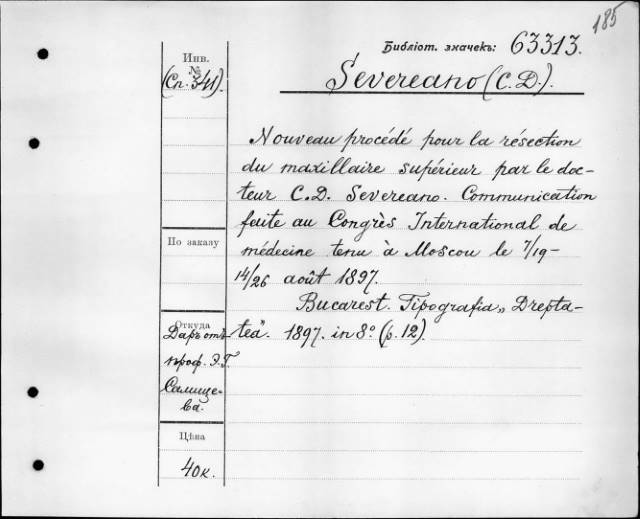 185
Библіот. значекъ: 63313.
Инв.
№
(Сп. 341).
Severeano (C. D.).
Nouveau procédé pour la résection
du maxillaire supérieur par le doc-
teur C. D. Severeano. Communication
feite au Congrès International de
médecine tenu à Moscou le 7/19-
14/26 août 1897.
Bucarest. Tipografia „Drepta-
tea". 1897. in 8° (p. 12).
По заказу
Откуда
Даръ отъ
проф. Э. Г.
Салище-
ва.
Цѣна
40 к.